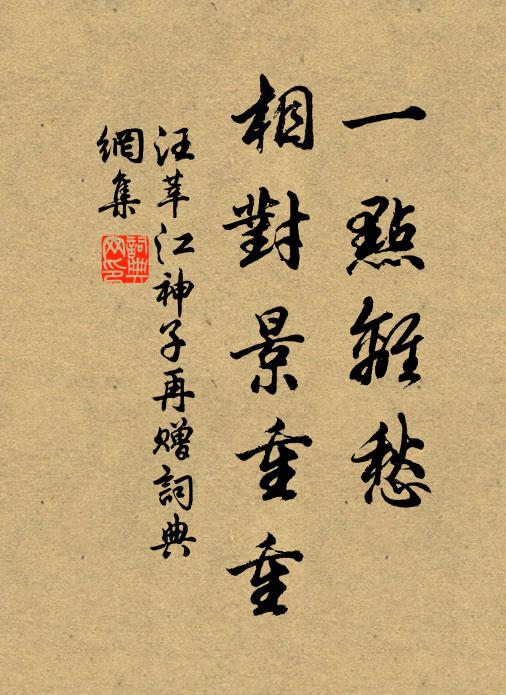 一點離愁
相對景重重
汪莘江神子再贈詞典
網集
詞典
网印